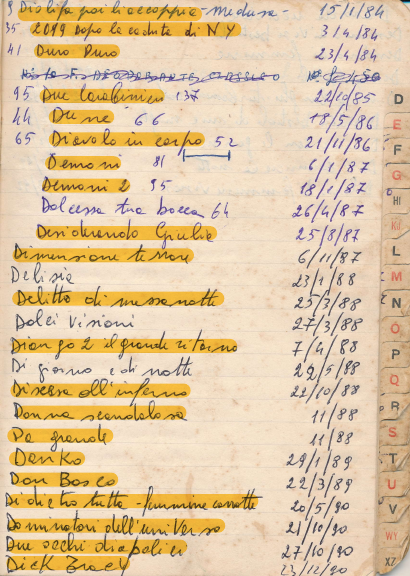 9 Dis li fa poi li accoppia - Medusa - 15/1/84
35 2019 Dopo la caduta di N Y 3/4/84
41 Duro Duro 23/4/84
95 Due Carabinieri 137 22/10/85
44 Dune 66 18/5/86
65 Diavolo in corpo 52 21/11/86
Demoni 81 6/1/87
Demoni 2 95 18/1/87
Dolcezza tua bocca 64 26/4/87
Desiderando Giulia 25/8/87
Dimensione terrore 6/11/87
Delizia 23/1/88
Delitto di mezzanotte 25/3/88
Dolci Visioni 27/3/88
Diango 2 il grande ritorno 7/4/88
Di giorno e di notte 29/5/88
Discesa all'inferno 22/10/88
Donna scandalosa 11/88
Da grande 11/88
Danko 29/1/89
Don Bosco 22/3/89
Di dietro tutta - femmine corrotte 20/5/90
Dominatori dell'universo 21/10/90
Due occhi diabolici 27/10/90
Dick Tracy 23/12/90
D
E
F
G
HI
KJ
L
M
N
O
P
Q
R
S
T
U
V
WY
XZ